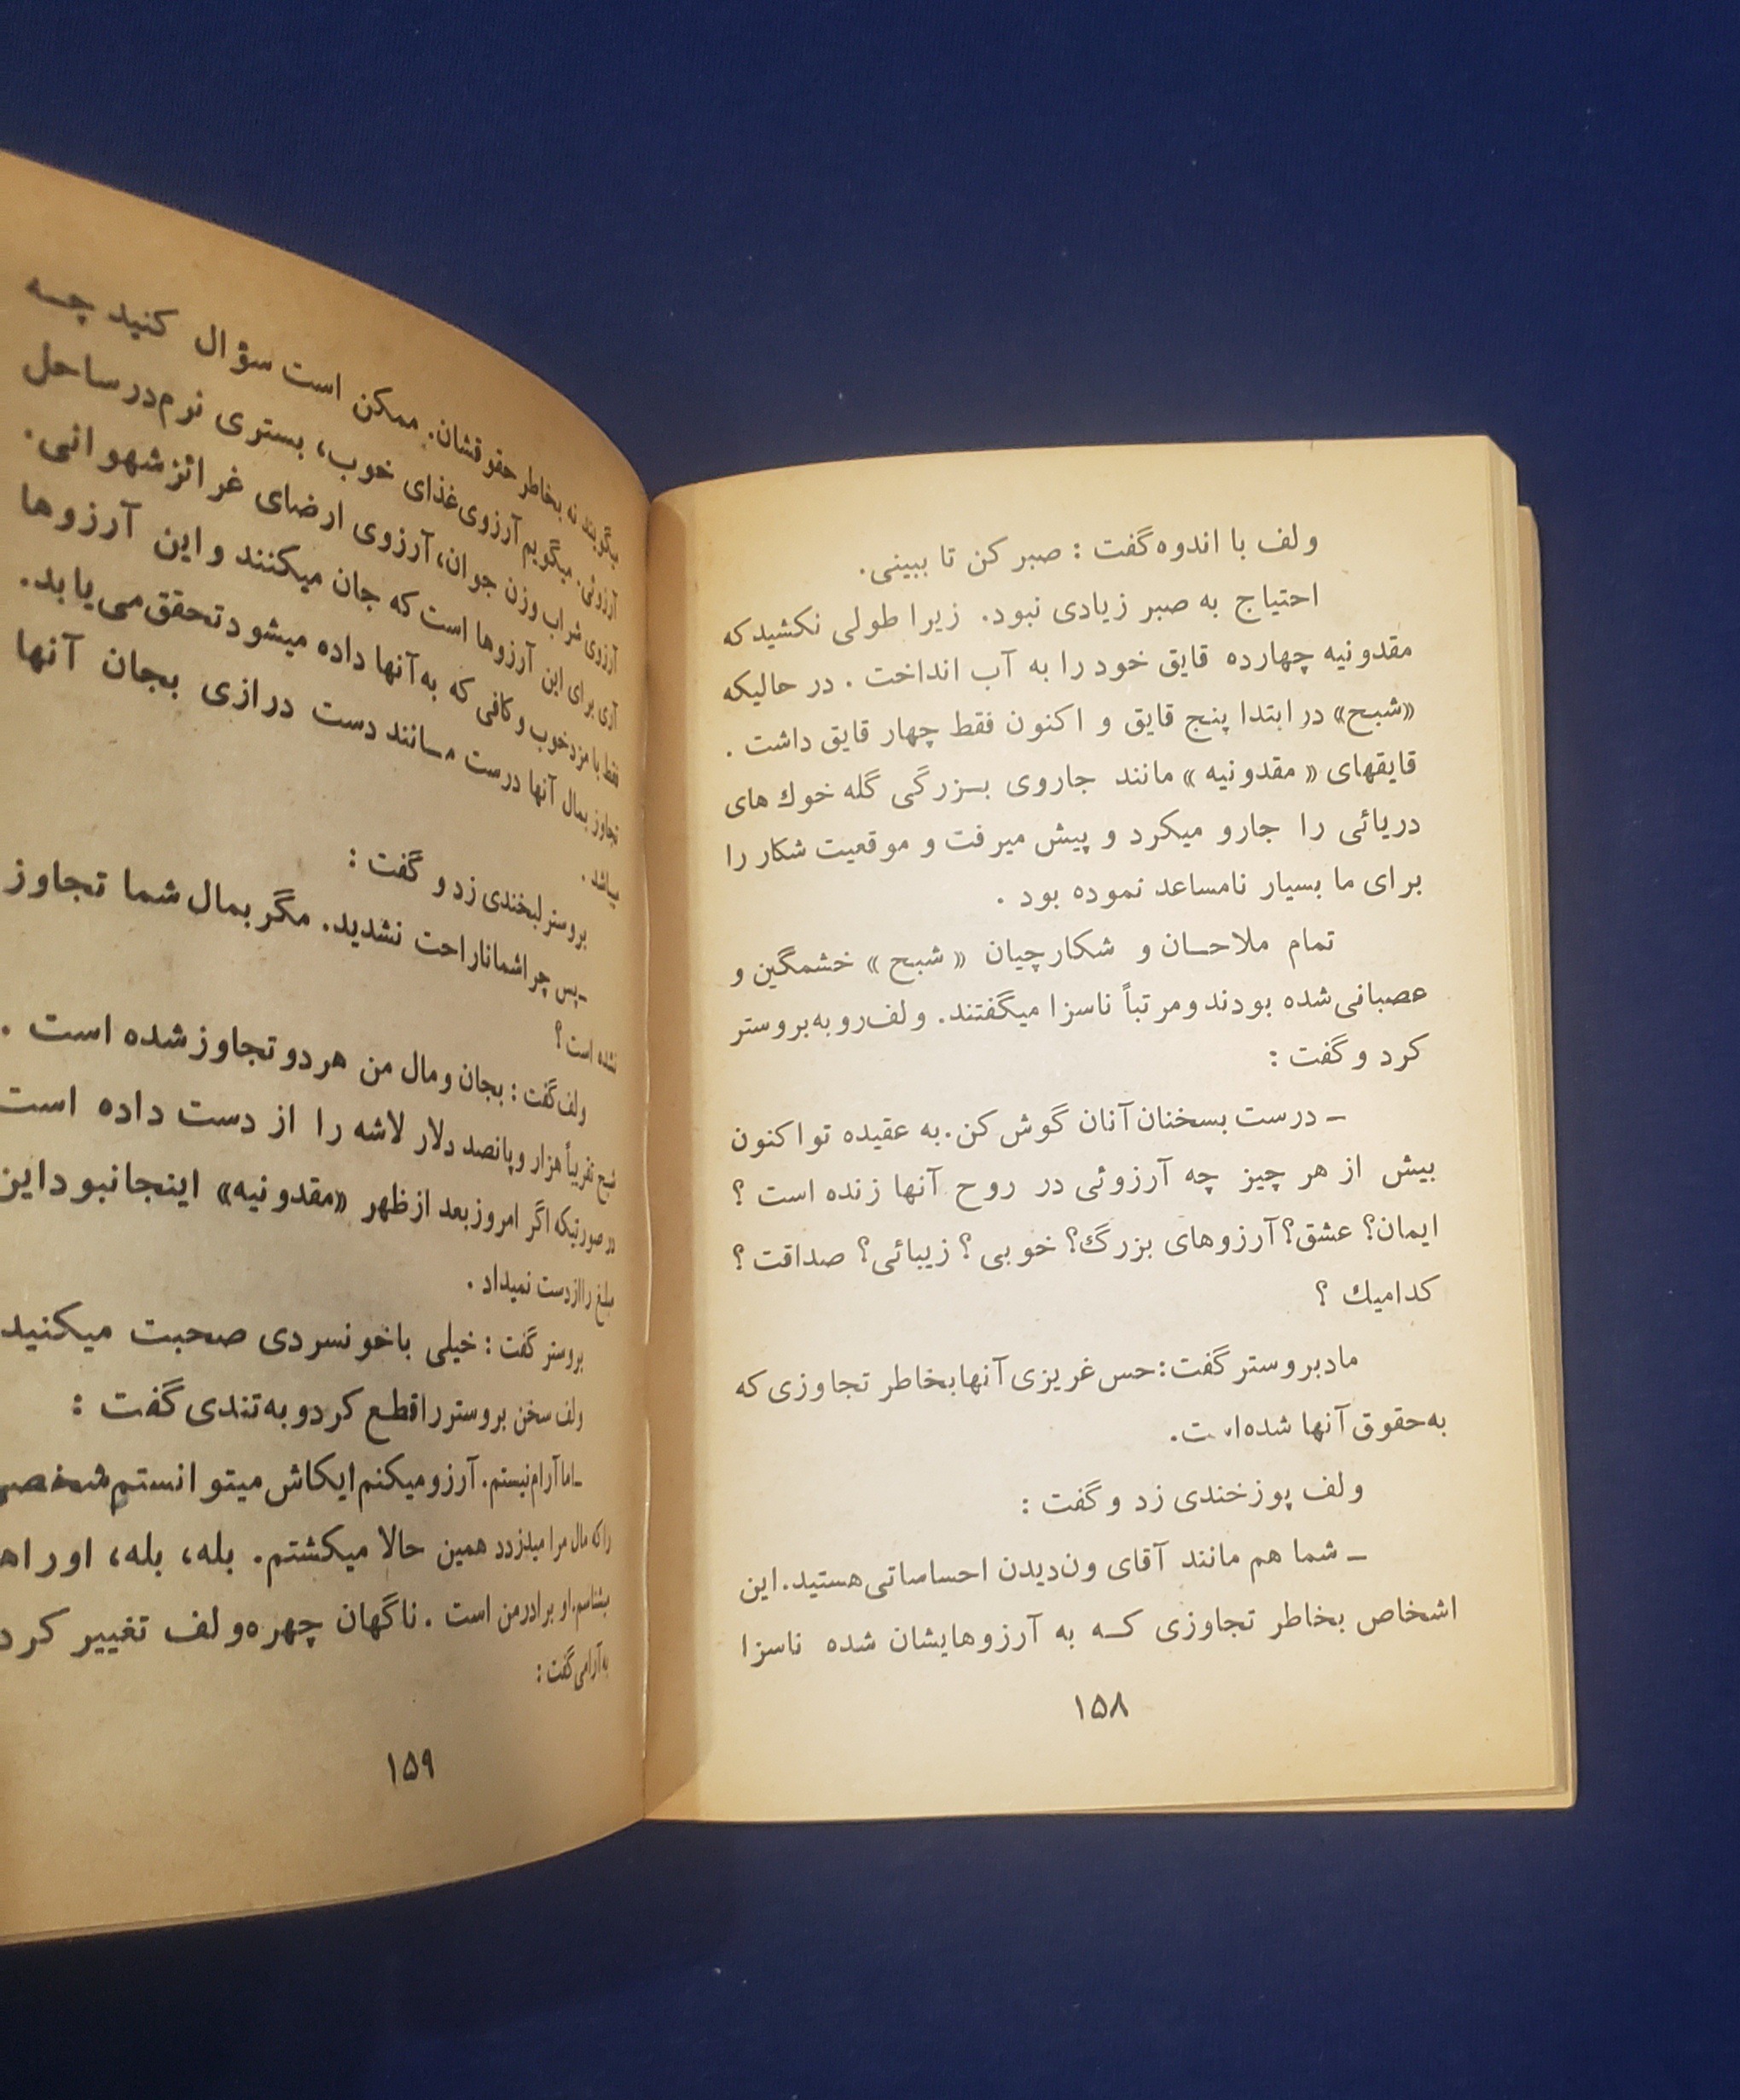 ولف با اندوه گفت : صبر کن تا ببینی.
احتیاج به صبر زیادی نبود. زیرا طولی نکشید که
مقدونیه چهارده قایق خود را به آب انداخت . در حالیکه
«شبح» در ابتدا پنج قایق و اکنون فقط چهار قایق داشت .
قایقهای « مقدونیه » مانند جاروی بـزرگی گله خوك های
دریائی را جارو میکرد و پیش میرفت و موقعیت شکار را
برای ما بسیار نامساعد نموده بود .
تمام ملاحـان و شکارچیان « شبح » خشمگین و
عصبانی شده بودند و مرتباً ناسزا میگفتند. ولف رو به بروستر
کرد و گفت :
ـ درست بسخنان آنان گوش کن. به عقیده تو اکنون
بیش از هر چیز چه آرزوئی در روح آنها زنده است ؟
ایمان؟ عشق؟ آرزوهای بزرگ؟ خوبی؟ زیبائی؟ صداقت ؟
کدامیك ؟
ماد بروستر گفت: حس غریزی آنها بخاطر تجاوزی که
به حقوق آنها شده است.
ولف پوزخندی زد و گفت :
ـ شما هم مانند آقای ون‌دیدن احساساتی هستید. این
اشخاص بخاطر تجاوزی کـه به آرزوهایشان شده ناسزا
۱۵۸
میگویند نه بخاطر حقوقشان. ممکن است سؤال کنید چـه
آرزوئی. میگویم آرزوی غذای خوب، بستری نرم در ساحل
آرزوی شراب وزن جوان، آرزوی ارضای غرائز شهوانی.
آری برای این آرزوها است که جان میکنند و این آرزوها
فقط با مزد خوب و کافی که به آنها داده میشود تحقق می یابد.
تجاوز بمال آنها درست مـانند دست درازی بجان آنها
میباشد .
بروستر لبخندی زد و گفت :
ـ پس چرا شما ناراحت نشدید. مگر بمال شما تجاوز
نشده است ؟
ولف گفت : بجان و مال من هر دو تجاوز شده است .
شبح تقریباً هزار و پانصد دلار لاشه را از دست داده است
در صورتیکه اگر امروز بعد از ظهر «مقدونیه» اینجا نبود این
مبلغ را از دست نمیداد .
بروستر گفت : خیلی با خونسردی صحبت میکنید
ولف سخن بروستر را قطع کرد و به تندی گفت :
ـ اما آرام نیستم. آرزو میکنم ایکاش میتوانستم شخصی
را که مال مرا میدزدد همین حالا میکشتم. بله، بله، او را
بشناسم. او برادر من است . ناگهان چهره ولف تغییر کرد
به آرامی گفت :
۱۵۹